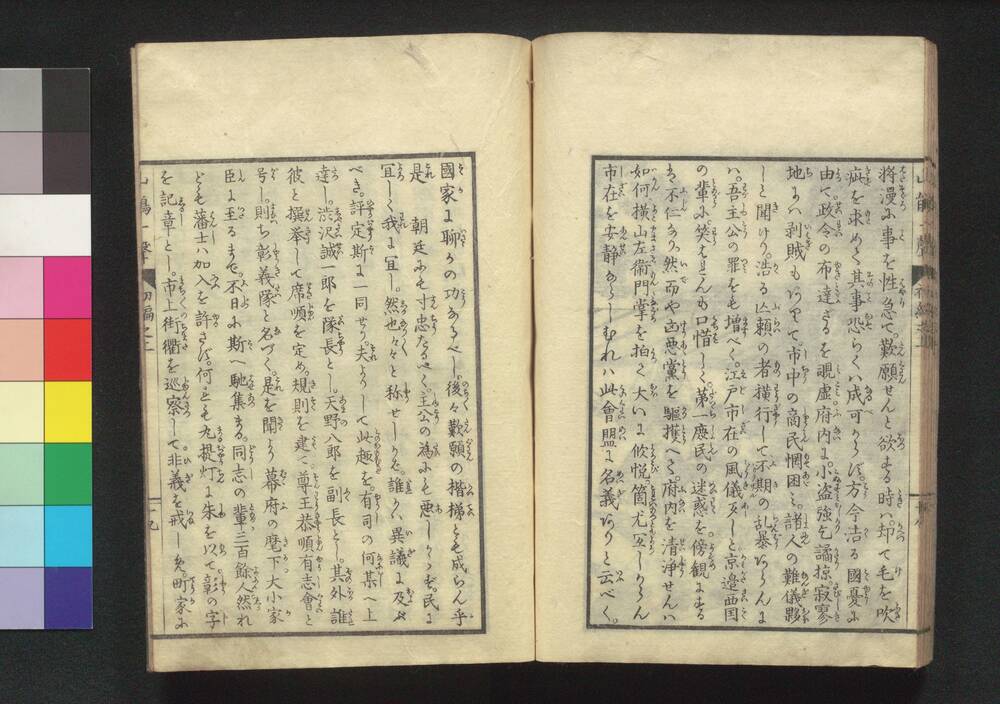 将漫に事を性急て歎願せんと欲する時ハ却て毛を吹
疵を求めく其事恐らくハ成可からず方今浩る國憂に
由て政令の布達ざるを覗虚府内に小盗強乞譎掠寂寥
地にハ剥賊もいでて市中の商民悃困ミ諸人の難儀夥
しと聞けり浩る凶頼の者横行して不期の乱暴あらんに
ハ吾主公の罪をも増べく江戸市在の風儀歹しと京邉西国
の輩に笑ハれんも口惜しく第一庶民の迷惑を傍観にする
も不仁なり然而や凶悪黨を駆攘へて府内を清浄せんハ
如何横山左衞門掌を拍て大いに攸悦箇尤妥しからん
市在を安静ならしむれハ此會盟に名義ありと云べく
國家に聊かの功あるべし後々歎願の楷梯とも成らん乎
是 朝廷にも寸忠たるべく主公の為にも悪しからず民に
宜しく我に宜し然也々々と称せしかば誰かハ異議に及ぶ
べき評定斯に一同せり夫よりして此趣を有司の何某へ上
達し渋沢誠一郎を隊長とし天野八郎を副長とし其外誰
彼と撰挙して席順を定め規則を建て尊王恭順有志會と
号し則ち彰義隊と名づく是を聞より幕府の麾下大小家
臣に至るまで不日に斯へ馳集まる同志の輩三百餘人然れ
ども藩士ハ加入を許さず何れも丸提灯に朱を以て彰の字
を記章とし市上街衢を巡察して非義を戒しめ町家に
山鵑一聲 初編之上
十九